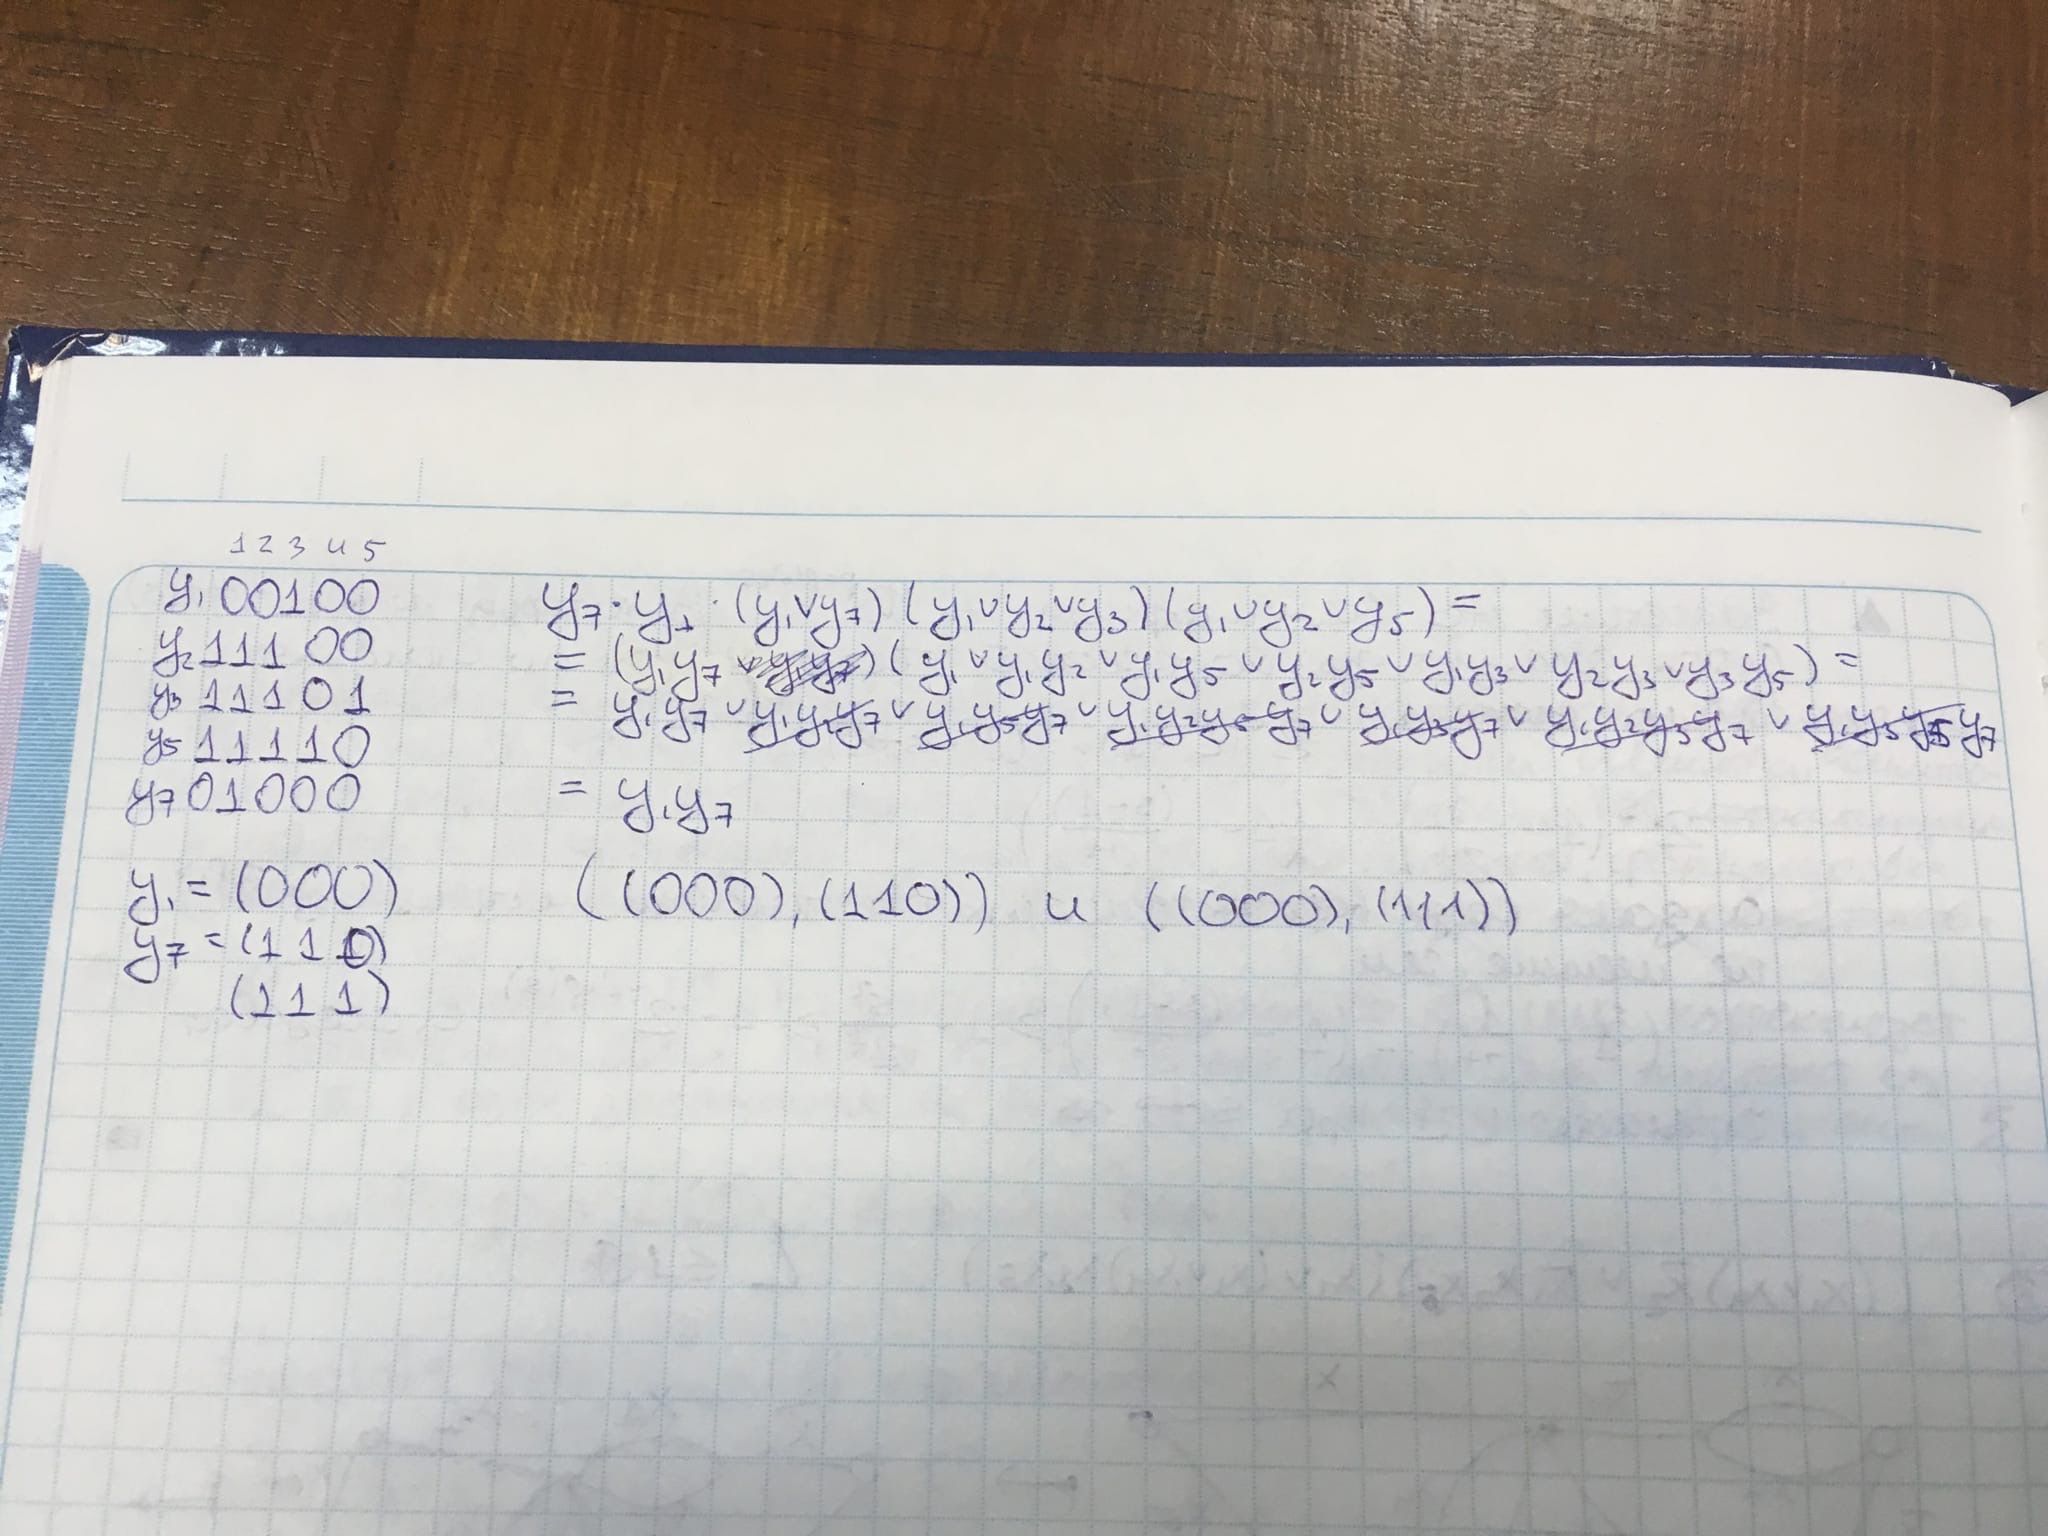 1 2 3 4 5
y₁ 00100
y₂ 11100
y₃ 11101
y₅ 11110
y₇ 01000
y₁ = (000)
y₇ = (110)
(111)
y₇ · y₁ · (y₁∨y₇) (y₁∨y₂∨y₃) (y₁∨y₂∨y₅) =
= (y₁y₇) (y₁ ∨ y₁y₂ ∨ y₁y₅ ∨ y₂y₅ ∨ y₁y₃ ∨ y₂y₃ ∨ y₃y₅) =
= y₁y₇ ∨ y₁y₂y₇ ∨ y₁y₅y₇ ∨ y₁y₂y₅y₇ ∨ y₁y₃y₇ ∨ y₁y₂y₃y₇ ∨ y₁y₃y₅y₇
= y₁y₇
((000), (110)) и ((000), (111))